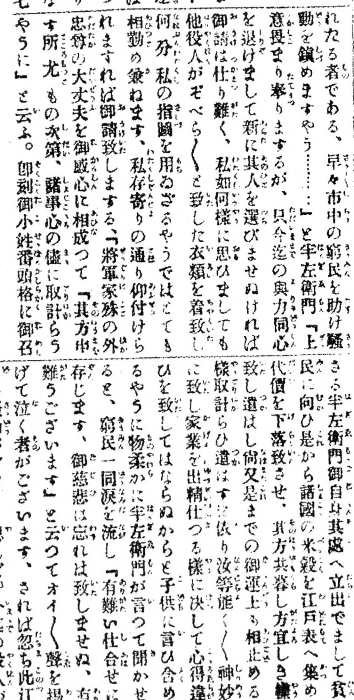 れたる者である、早々市中の窮民を助け騒
動を鎮めますやう………』と半左衛門『上
意畏まり奉りまするが、只今迄の與力同心
を退けまして新に其人を選びませぬければ
御請は仕り難く、私如何様に思ひましても
他役人がぞべら〱と致した衣類を着致し
何分私の指圖を用ゐざるやうではとても
相勤め兼ねます、私存寄りの通り仰付けら
れますれば御請致しまする、『将軍家殊の外
忠尊の大丈夫を御感心に相成つて『其方申
す所尤もの次第、諸事心の儘に取計らう
やうに』と云ふ。卽刻御小姓番頭格に御召
さる半左衛門御自身其處へ立出でまして窮
民に向ひ是から諸國の米穀を江戸表へ集め
代價を下落致させ、其方共暮し方宜しき様
致し遣はし尚又是までの御運上も相止め
様取計らひ遣はす
依り汝等能く〱神妙
に致し家業を出精仕つる様に決して心得違
ひを致してはならぬからと子供に言ひ含め
るやうに物柔かに半左衛門が言つて聞かせ
ると、窮民一同涙を流し『有難い仕合せに
存じます、御慈悲は忘れは致しませぬ、有
難うございます』と云つてオイ〱聲を揚
げて泣く者がございます。されば忽ち此江